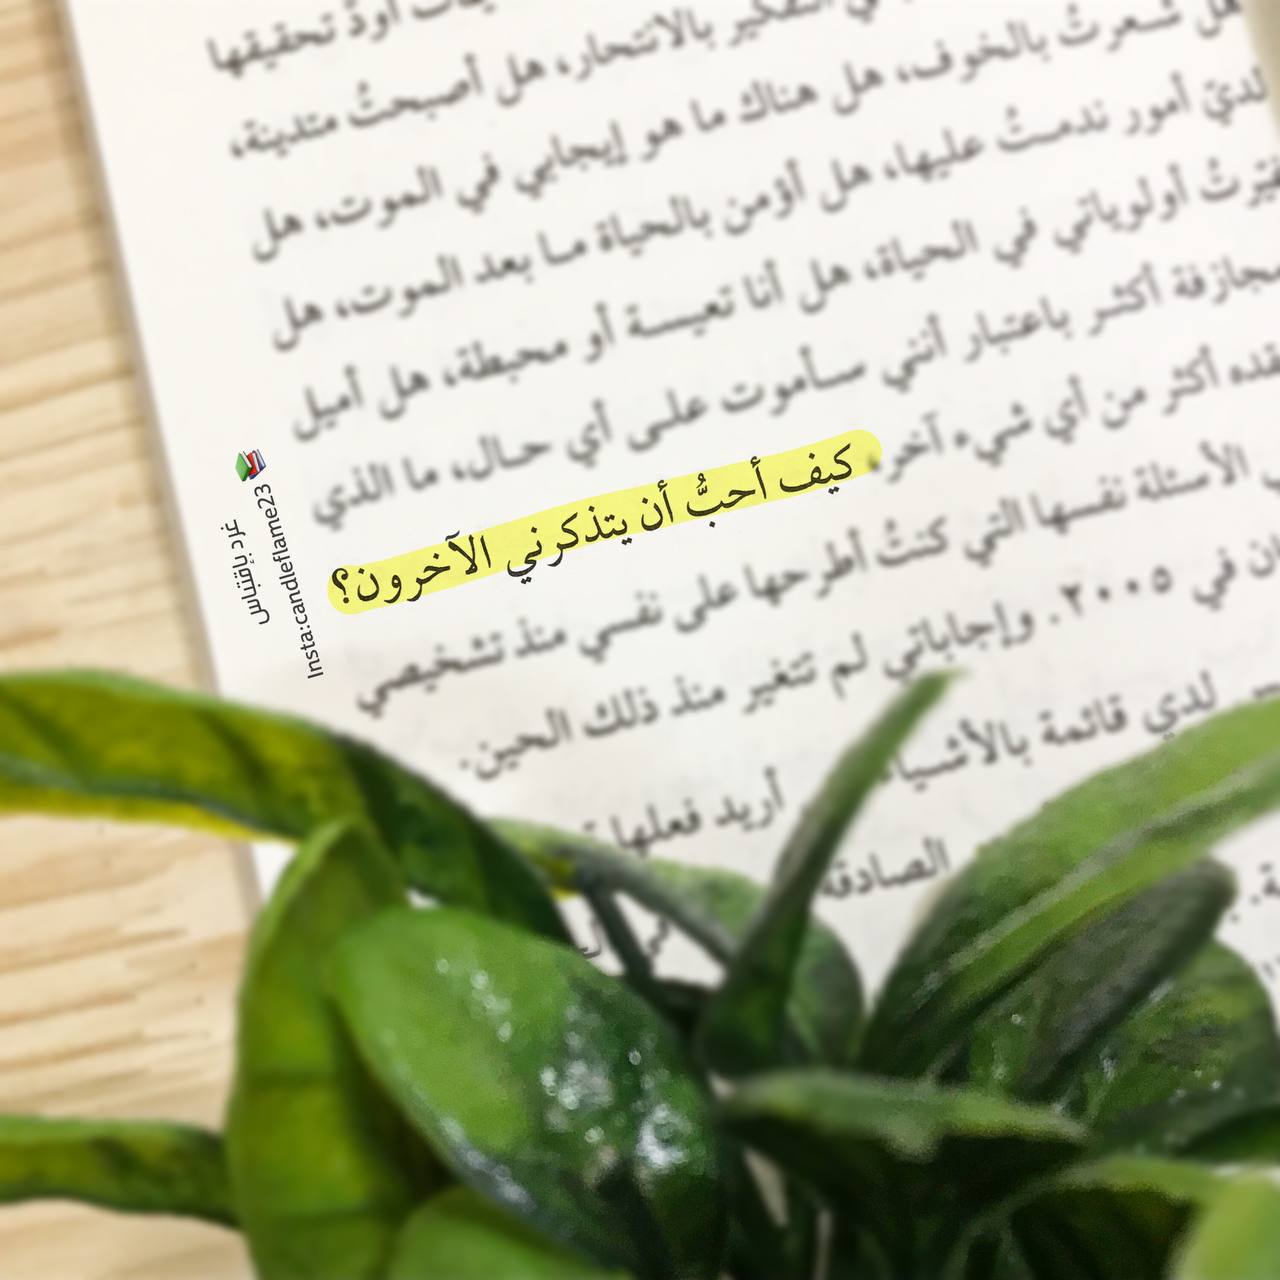 أودّ تحقيقها
التفكير بالانتحار، هل أصبحتُ متدينة،
هل شعرتُ بالخوف، هل هناك ما هو إيجابي في الموت، هل
لديّ أمور ندمتُ عليها، هل أؤمن بالحياة ما بعد الموت، هل
أولوياتي في الحياة، هل أنا تعيسة أو محبطة، هل أميل
أكثر باعتبار أنني سأموت على أي حال، ما الذي
أكثر من أي شيء آخر، كيف أحبُّ أن يتذكرني الآخرون؟
الأسئلة نفسها التي كنتُ أطرحها على نفسي منذ تشخيصي
في ٢٠٠٥. وإجاباتي لم تتغير منذ ذلك الحين.
لدي قائمة بالأشياء
أريد فعلها
الصادقة
غرد بإقتباس
Insta:candleflame23